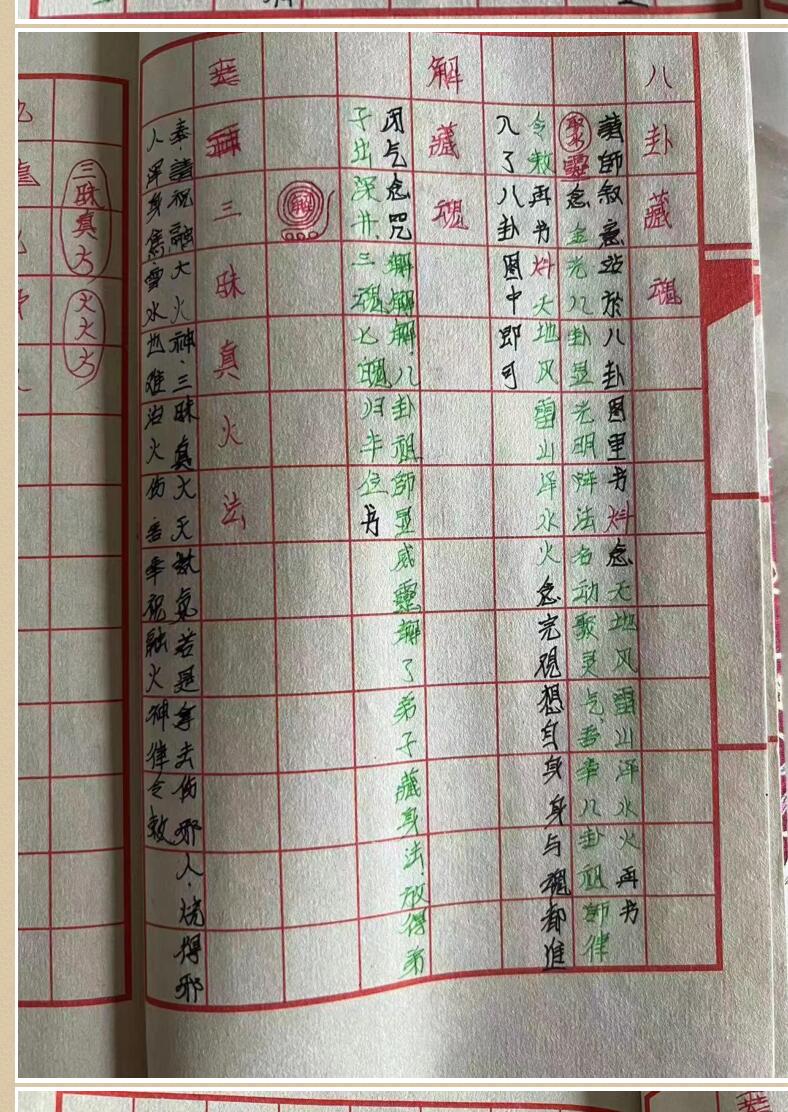 八卦藏魂
藏师叙意站於八卦图里书炓念天地风雷山泽水火再书
聚水靈念金光八卦显光明辩法名动聚灵气吾奉八卦祖师律
令敕再书炓天地风雷山泽水火念完观想自身身与魂都進
入了八卦图中即可
解藏魂
闭气念咒解解解八卦祖师显威靈解了弟子藏身法放得弟
子出深井三魂七魄归本位书
解
三昧真火法
奉請祝融大火神三昧真火天煞氣若是拿去伤邪人烧得邪
人浑身焦雪水也难治火伤吾奉祝融火神律令敕
三昧真火
火火火